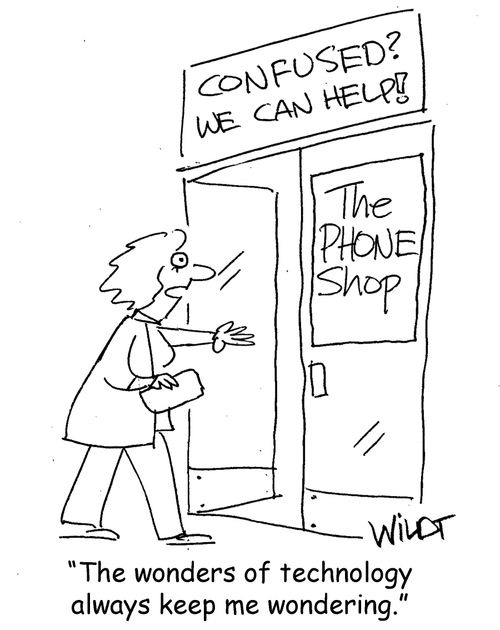 CONFUSED?
WE CAN HELP!!
The
PHONE
Shop
WiLDT
"The wonders of technology
always keep me wondering."